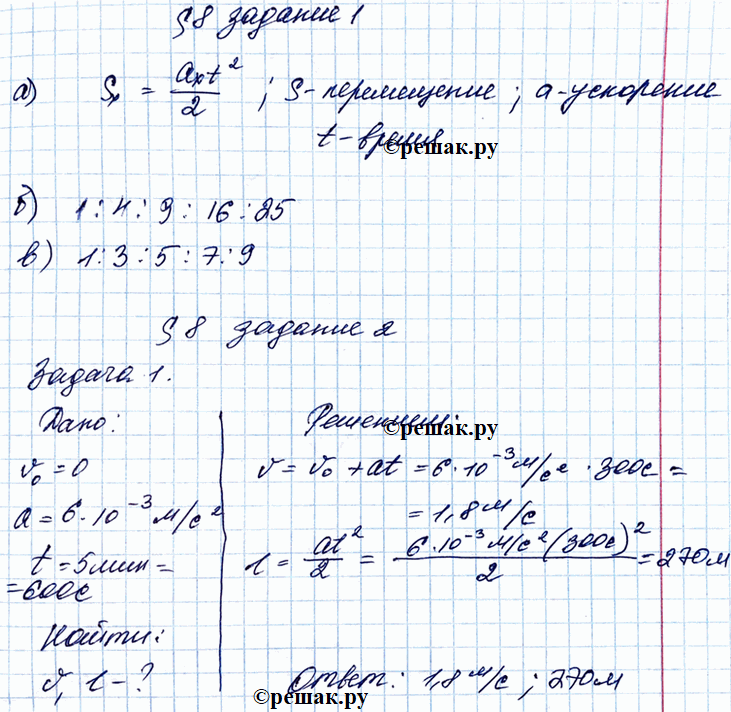 §8 задание 1
а) Sₓ = aₓt²/2 ; S-перемещение ; a-ускорение
t-время
©решак.ру
б) 1:4:9:16:25
в) 1:3:5:7:9
§8 задание 2
Задача 1.
Дано:
v₀=0
a=6·10⁻³м/с²
t=5мин=
=600с
Найти:
v, l-?
Решение:
©решак.ру
v=v₀+at=6·10⁻³м/с²·300с=
=1,8м/с
l=at²/2=6·10⁻³м/с²(300с)²/2=270м
Ответ: 1,8м/с; 270м
©решак.ру